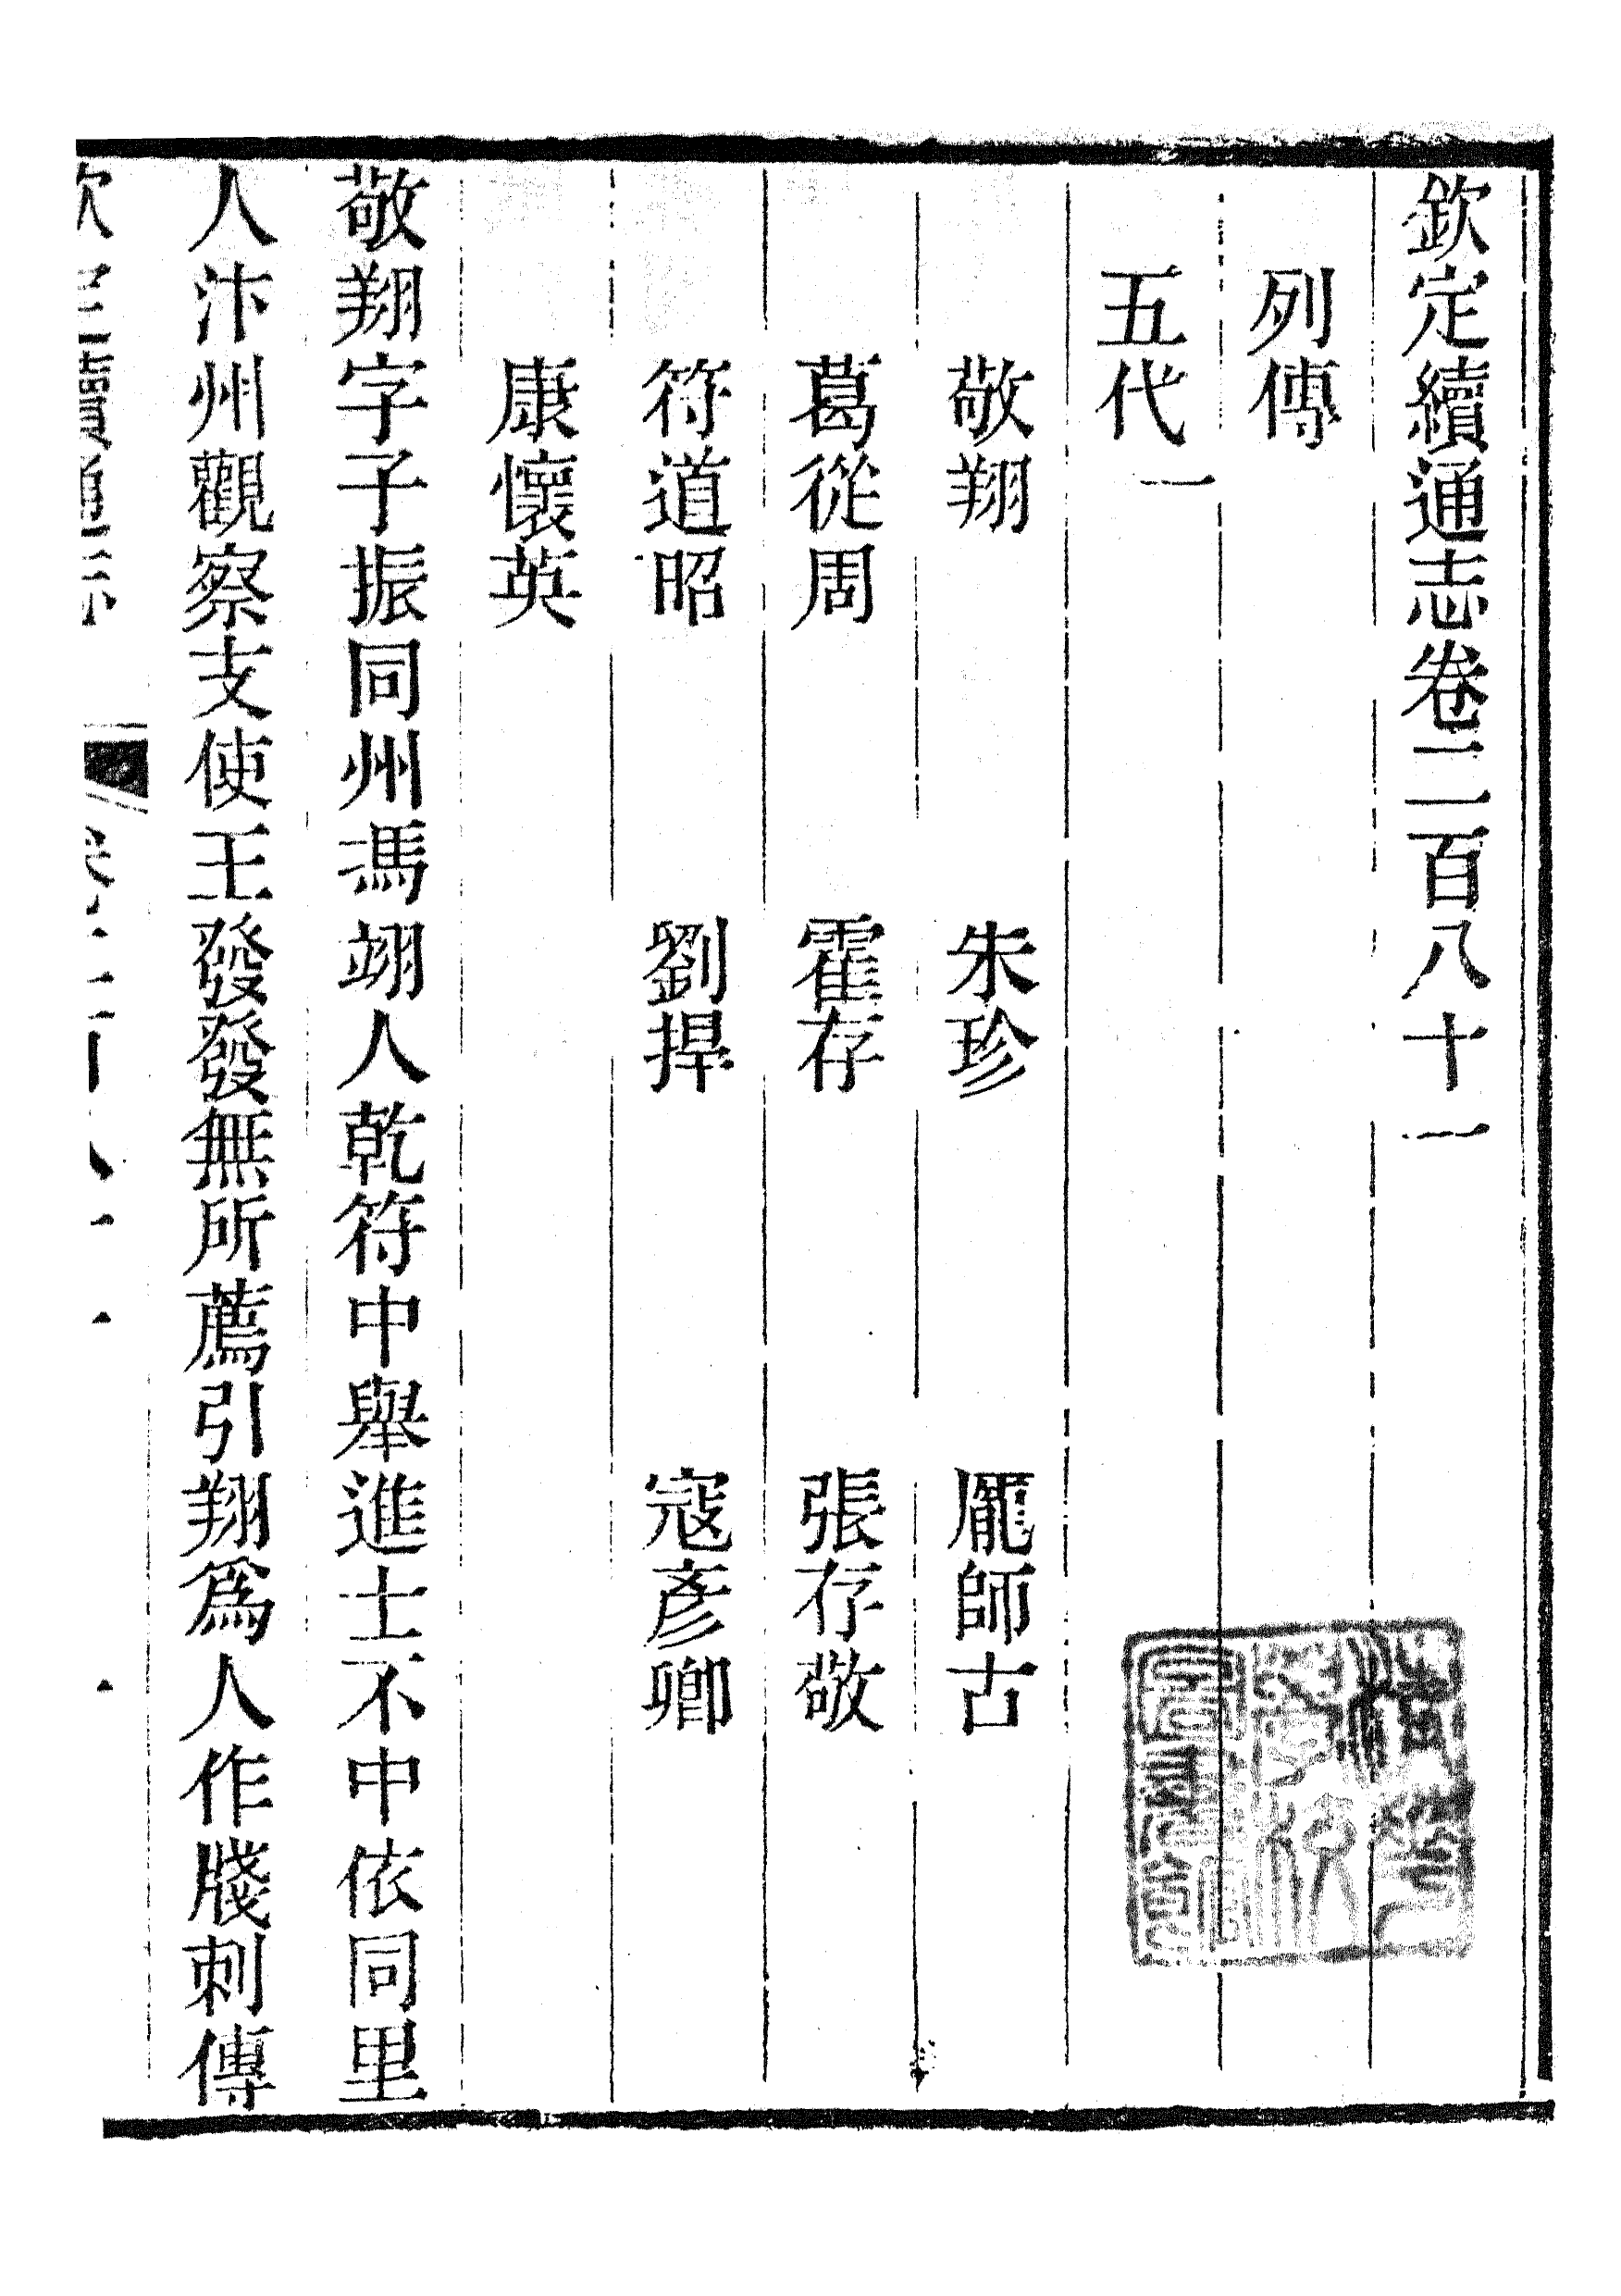 欽定續通志卷二百八十一
列傳
五代一
敬翔　朱珍　龎師古
葛從周　霍存　張存敬
符道昭　劉捍　寇彥卿
康懷英
敬翔字子振同州馮翊人乾符中舉進士不中依同里
人汴州觀察支使王發發無所薦引翔爲人作牋刺傳